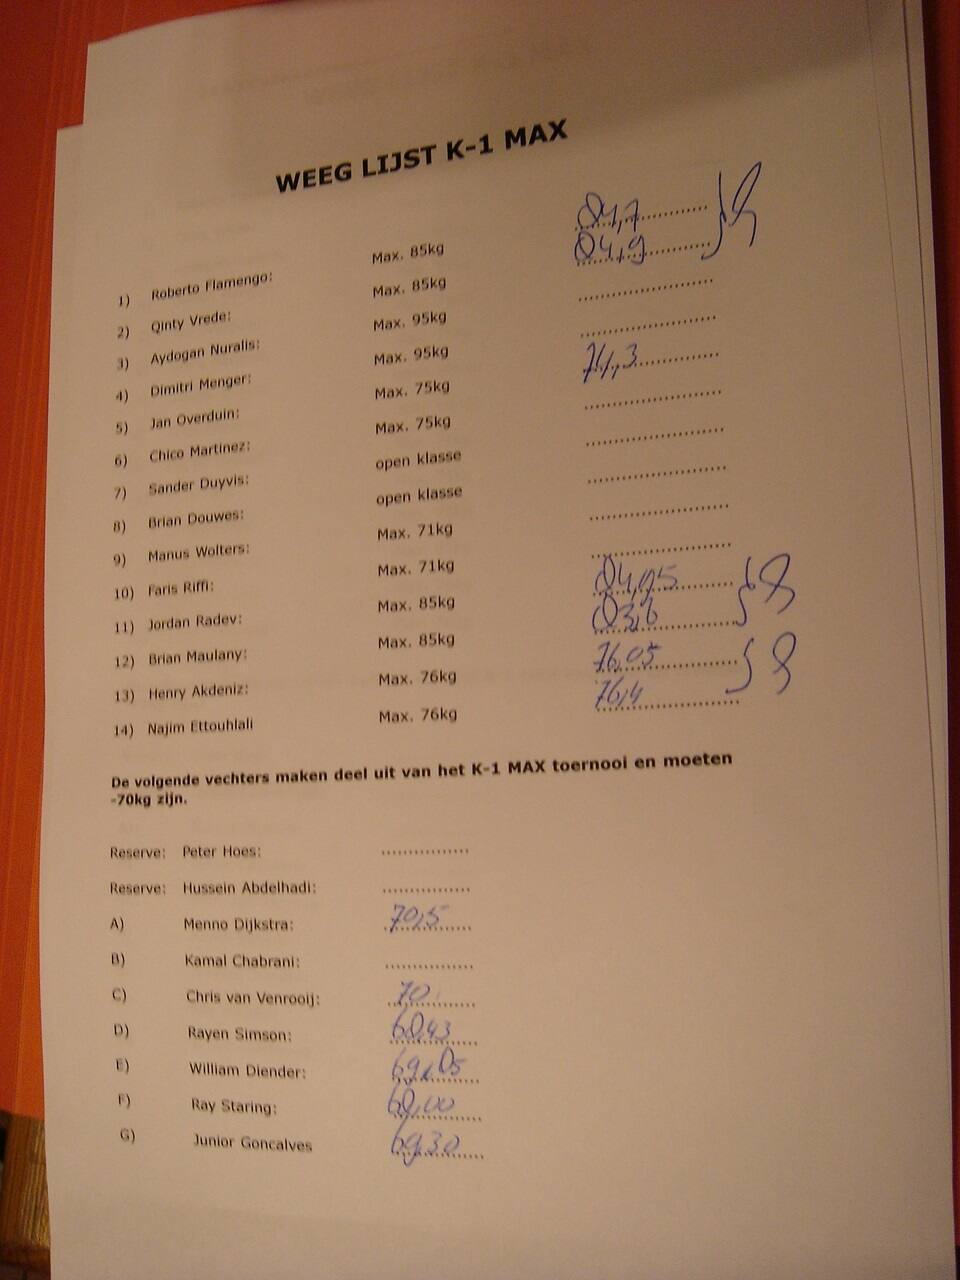 WEEG LIJST K-1 MAX
1) Roberto Flamengo: Max. 85kg 84,7
2) Qinty Vrede: Max. 85kg 84,9
3) Aydogan Nuralis: Max. 95kg
4) Dimitri Menger: Max. 95kg
5) Jan Overduin: Max. 75kg 74,3
6) Chico Martinez: Max. 75kg
7) Sander Duyvis: open klasse
8) Brian Douwes: open klasse
9) Manus Wolters: Max. 71kg
10) Faris Riffi: Max. 71kg
11) Jordan Radev: Max. 85kg
12) Brian Maulany: Max. 85kg 83,6
13) Henry Akdeniz: Max. 76kg 76,05
14) Najim Ettouhlali Max. 76kg 76,4
De volgende vechters maken deel uit van het K-1 MAX toernooi en moeten
-70kg zijn.
Reserve: Peter Hoes:
Reserve: Hussein Abdelhadi:
A) Menno Dijkstra: 70,5
B) Kamal Chabrani:
C) Chris van Venrooij: 70
D) Rayen Simson: 68,43
E) William Diender:
F) Ray Staring: 68,00
G) Junior Goncalves 69,30